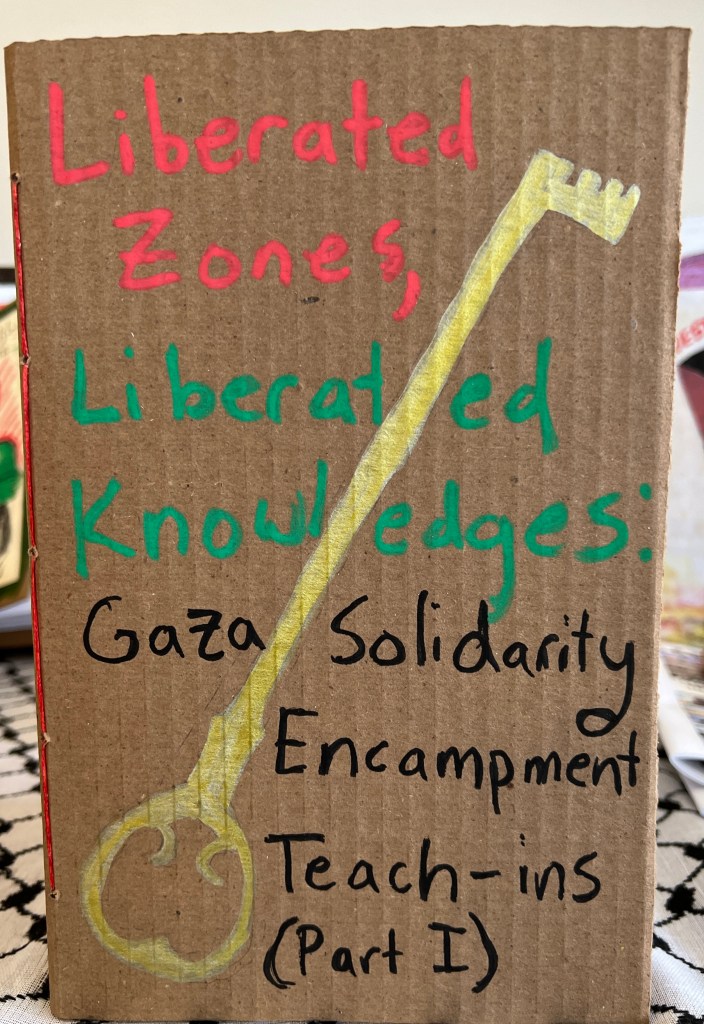 Liberated
Zones,
Liberated
Knowledges:
Gaza Solidarity
Encampment
Teach-ins
(Part I)